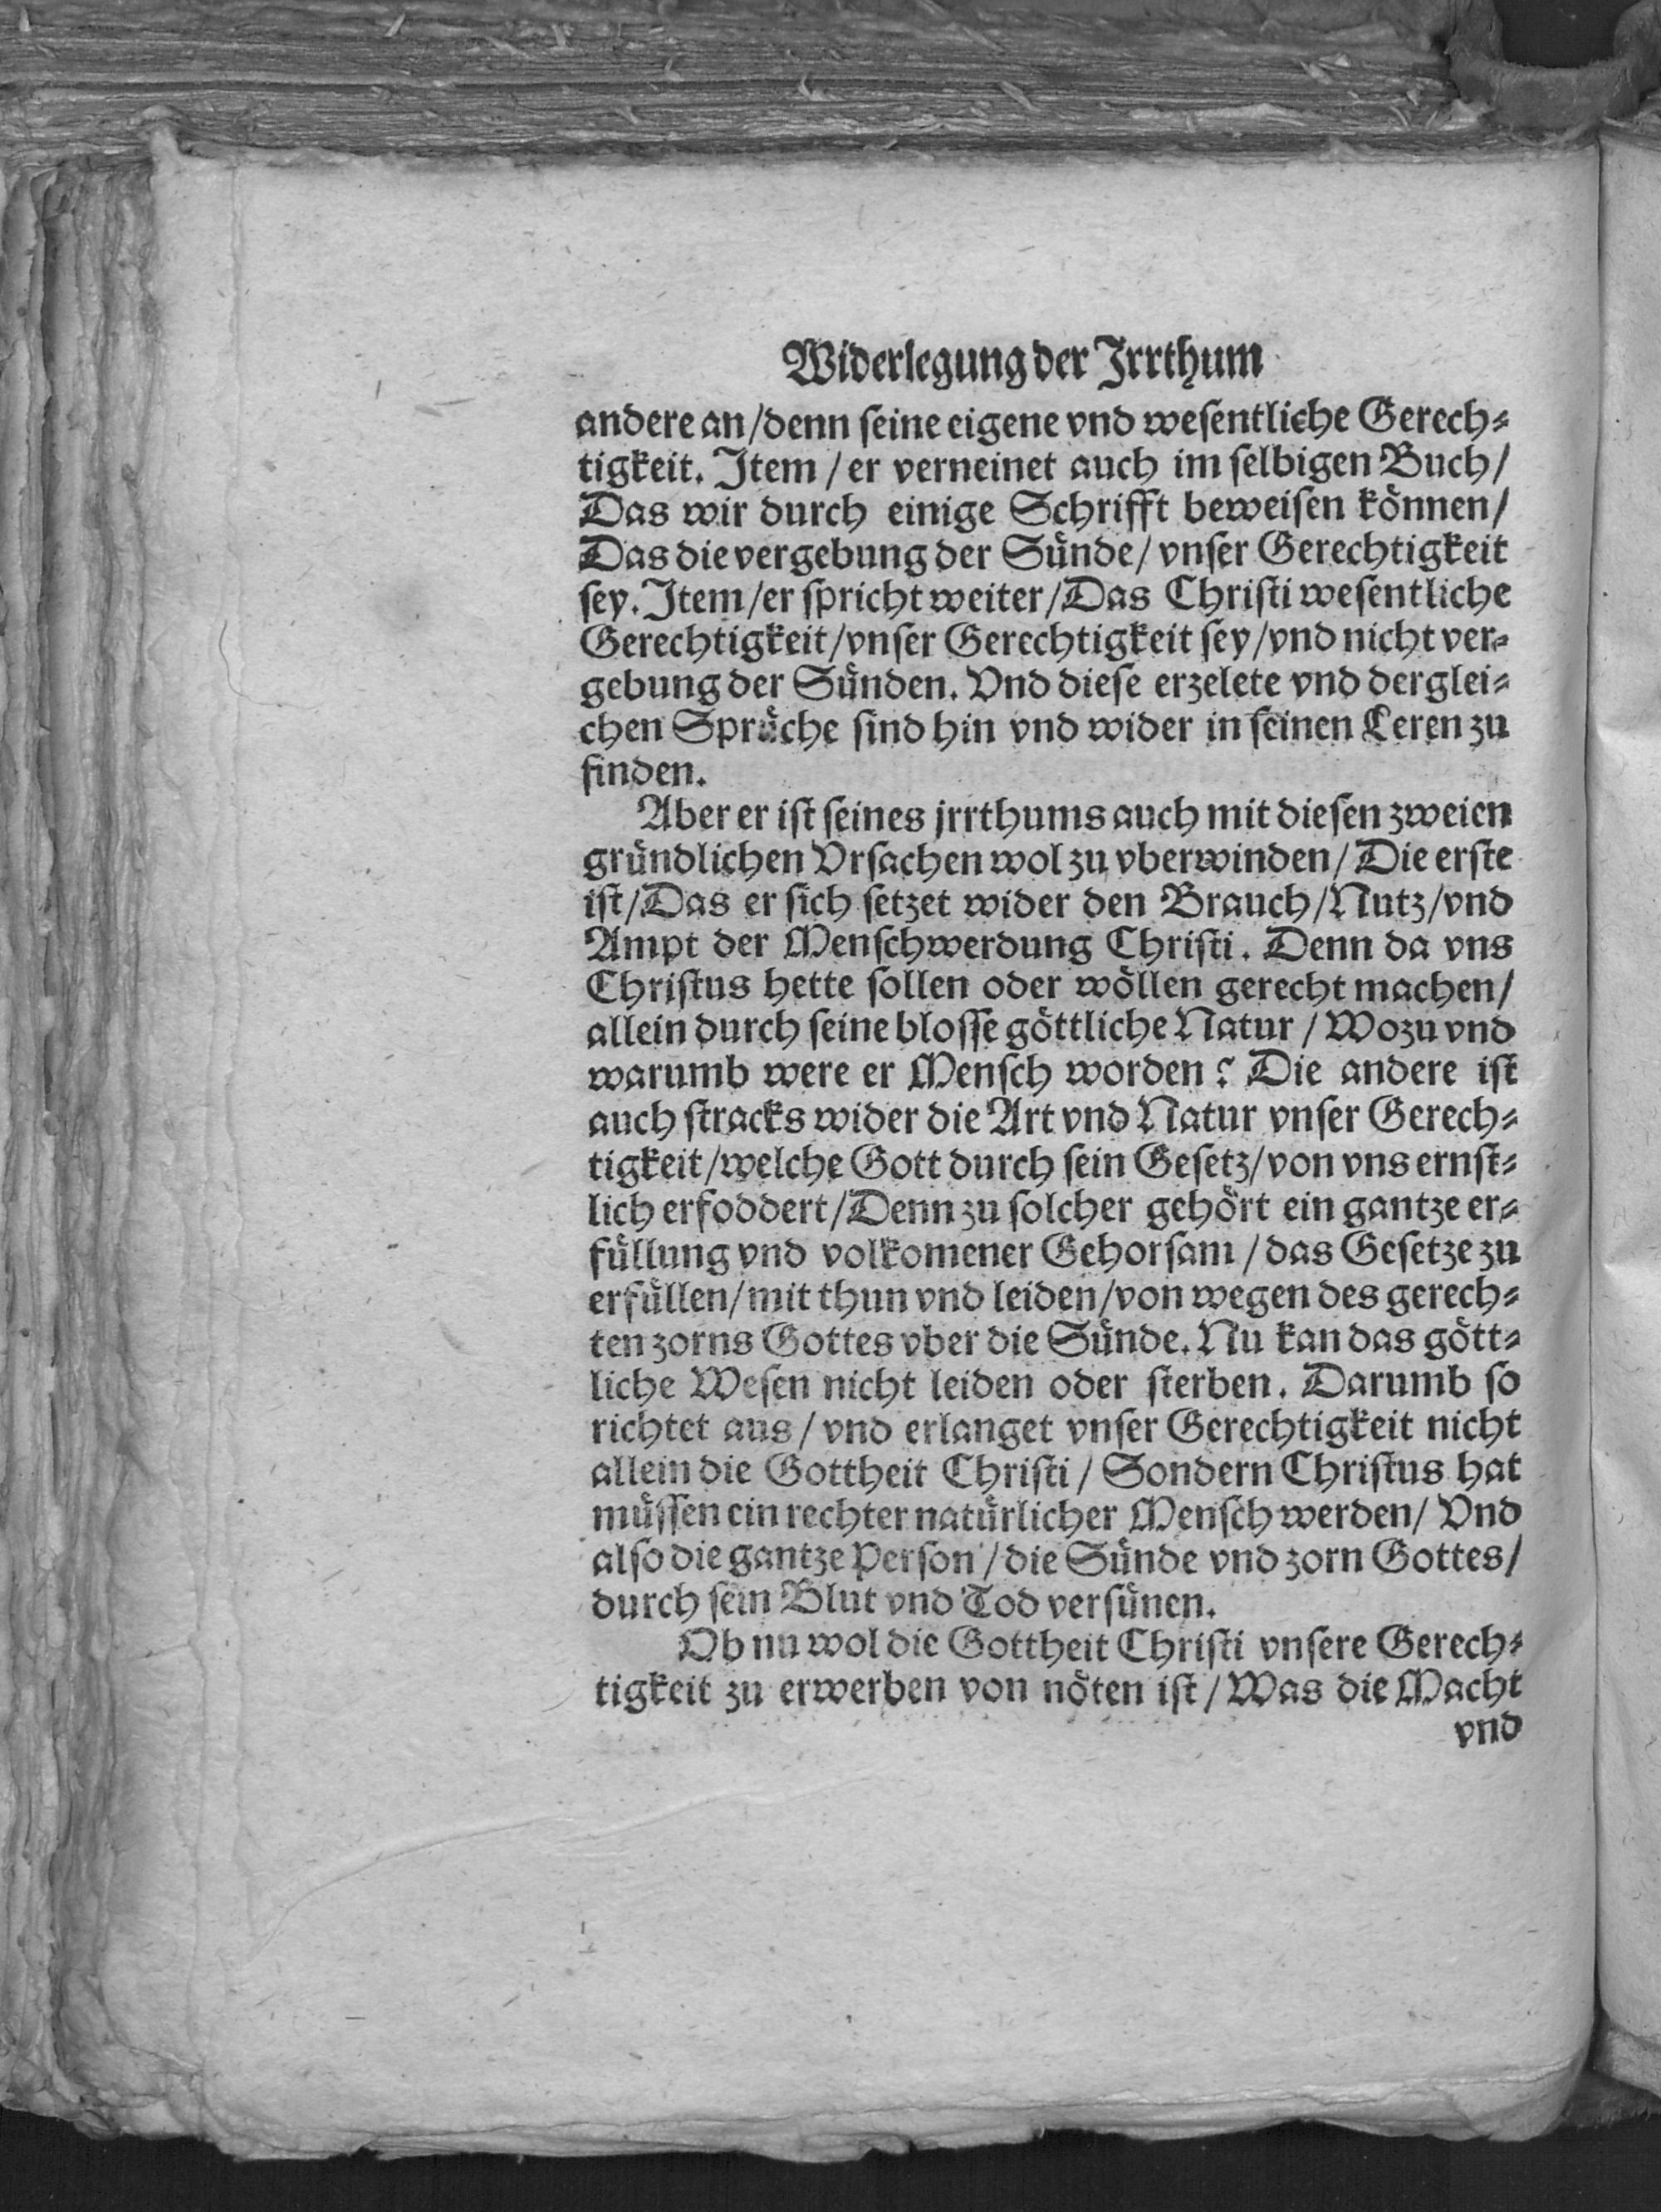 Widerlegung der Jrrthum
andere an/denn ſeine eigene vnd weſentliche Gerech⸗
tigkeit. Jtem/er verneinet auch im ſelbigen Buch/
Das wir durch einige Schrifft beweiſen können/
Das die vergebung der Sünde/vnſer Gerechtigkeit
ſey. Jtem/er ſpricht weiter/Das Chriſti weſentliche
Gerechtigkeit/vnſer Gerechtigkeit ſey/vnd nicht ver⸗
gebung der Sünden. Vnd dieſe erzelete vnd derglei⸗
chen Sprüche ſind hin vnd wider in ſeinen Leren zu
finden.
Aber er iſt ſeines jrrthums auch mit dieſen zweien
gründlichen Vrſachen wol zu vberwinden/Die erſte
iſt/Das er ſich ſetzet wider den Brauch/Nutz/vnd
Ampt der Menſchwerdung Chriſti. Denn da vns
Chriſtus hette ſollen oder wöllen gerecht machen/
allein durch ſeine bloſſe göttliche Natur/Wozu vnd
warumb were er Menſch worden? Die andere iſt
auch ſtracks wider die Art vnd Natur vnſer Gerech⸗
tigkeit/welche Gott durch ſein Geſetz/von vns ernſt⸗
lich erfoddert/Denn zu ſolcher gehört ein gantze er⸗
füllung vnd volkomener Gehorſam/das Geſetze zu
erfüllen/mit thun vnd leiden/von wegen des gerech⸗
ten zorns Gottes vber die Sünde. Nu kan das gött⸗
liche Weſen nicht leiden oder ſterben. Darumb ſo
richtet aus/vnd erlanget vnſer Gerechtigkeit nicht
allein die Gottheit Chriſti/Sondern Chriſtus hat
müſſen ein rechter natürlicher Menſch werden/Vnd
alſo die gantze Perſon/die Sünde vnd zorn Gottes/
durch ſein Blut vnd Tod verſünen.
Ob nu wol die Gottheit Chriſti vnſere Gerech⸗
tigkeit zu erwerben von nöten iſt/Was die Macht
vnd